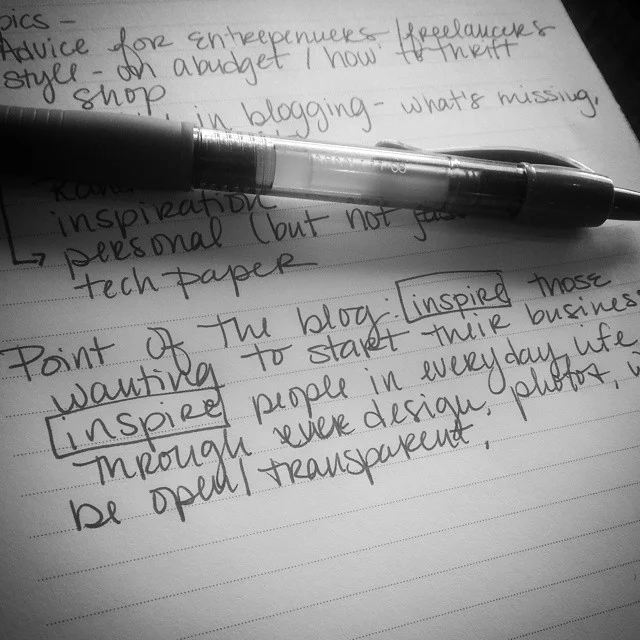 pics -
Advice for entrepenuers / freelancers
style - on a budget / how to thrift
shop
in blogging - what's missing,
inspiration
personal (but not
tech paper
Point of the blog: inspire those
wanting to start their business
inspire people in everyday life
through design, photos,
be open / transparent.